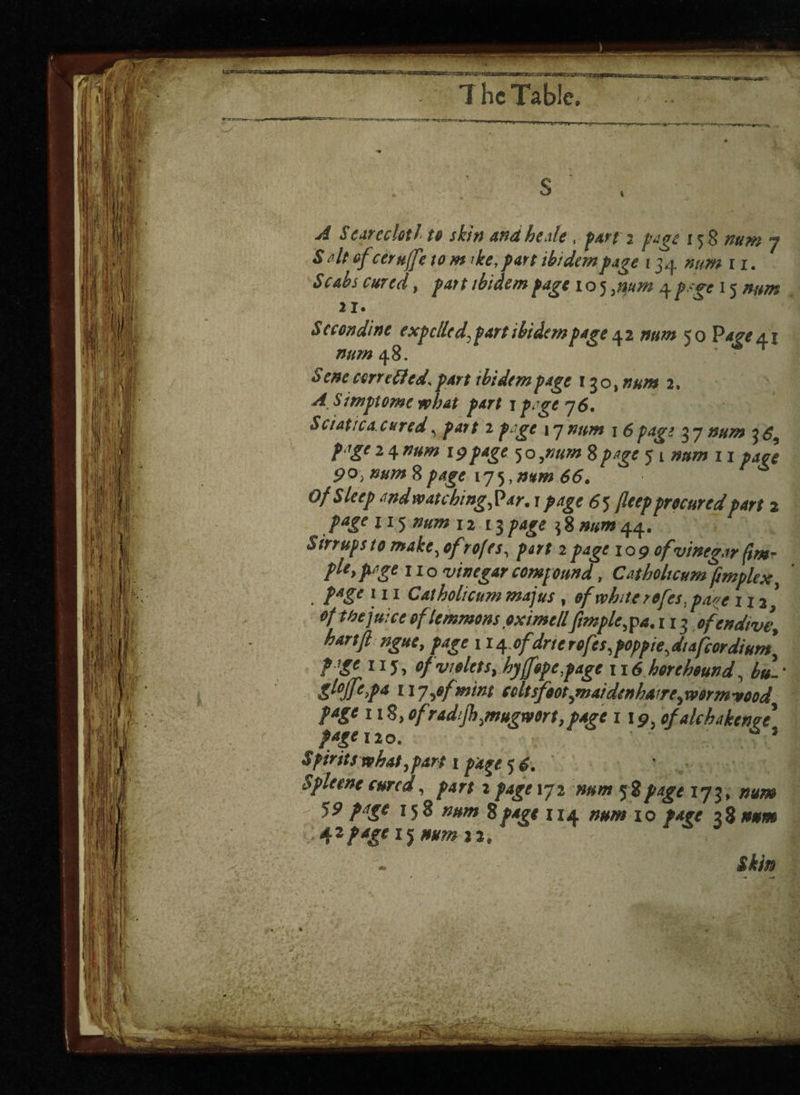 The Table.
S
A Searecloth to skin and heale, part 2 page 158 num 7
Salt of ceruſſe to make, part ibidem page 134 num 11.
Scabs cured, part ibidem page 105, num 4 page 15 num
21.
Secondine expelled, part ibidem page 42 num 50 Page 41
num 48.
Sene corrected, part ibidem page 130, num 2.
A Simptome what part 1 page 76.
Sciatica cured, part 2 page 17 num 16 page 37 num 36,
page 24 num 19 page 50, num 8 page 51 num 11 page
90, num 8 page 175, num 66.
Of Sleep and watching, Par. 1 page 65 ſleep procured part 2
page 115 num 12 13 page 38 num 44.
Sirrups to make, of roſes, part 2 page 109 of vinegar ſim-
ple, page 110 vinegar compound, Catholicum ſimplex,
page 111 Catholicum majus, of white roſes, page 112,
of the juice of lemmons oximell ſimple, pa. 113 of endive,
hartſt ngue, page 114 of drie roſes, poppie, diaſcordium,
page 115, of violets, hyſſope, page 116 horehound, bu-
gloſſe, pa 117, of mint coltsfoot, maidenhaire, wormwood,
page 118, of radiſh, mugwort, page 119, of alchakenge,
page 120.
Spirits what, part 1 page 56.
Spleene cured, part 2 page 172 num 58 page 173, num
59 page 158 num 8 page 114 num 10 page 38 num
42 page 15 num 22.
Skin